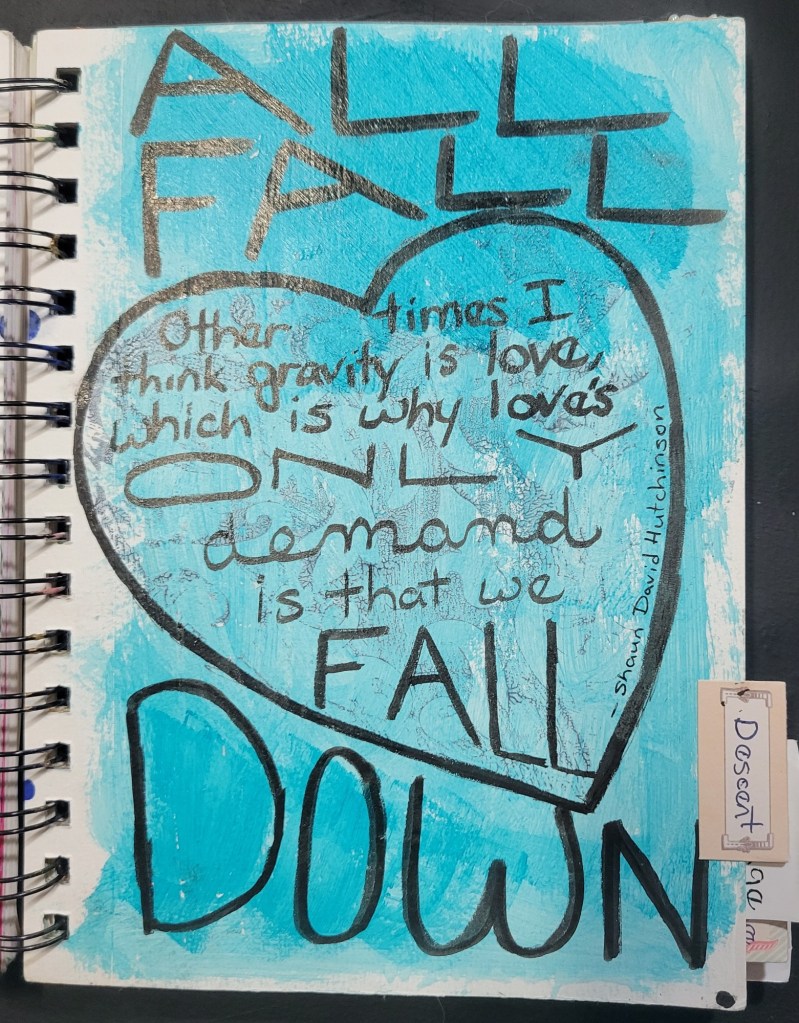 ALL
FALL
Other times I
think gravity is love,
which is why love's
ONLY
demand
is that we
FALL
- Shaun David Hutchinson
DOWN
Descent